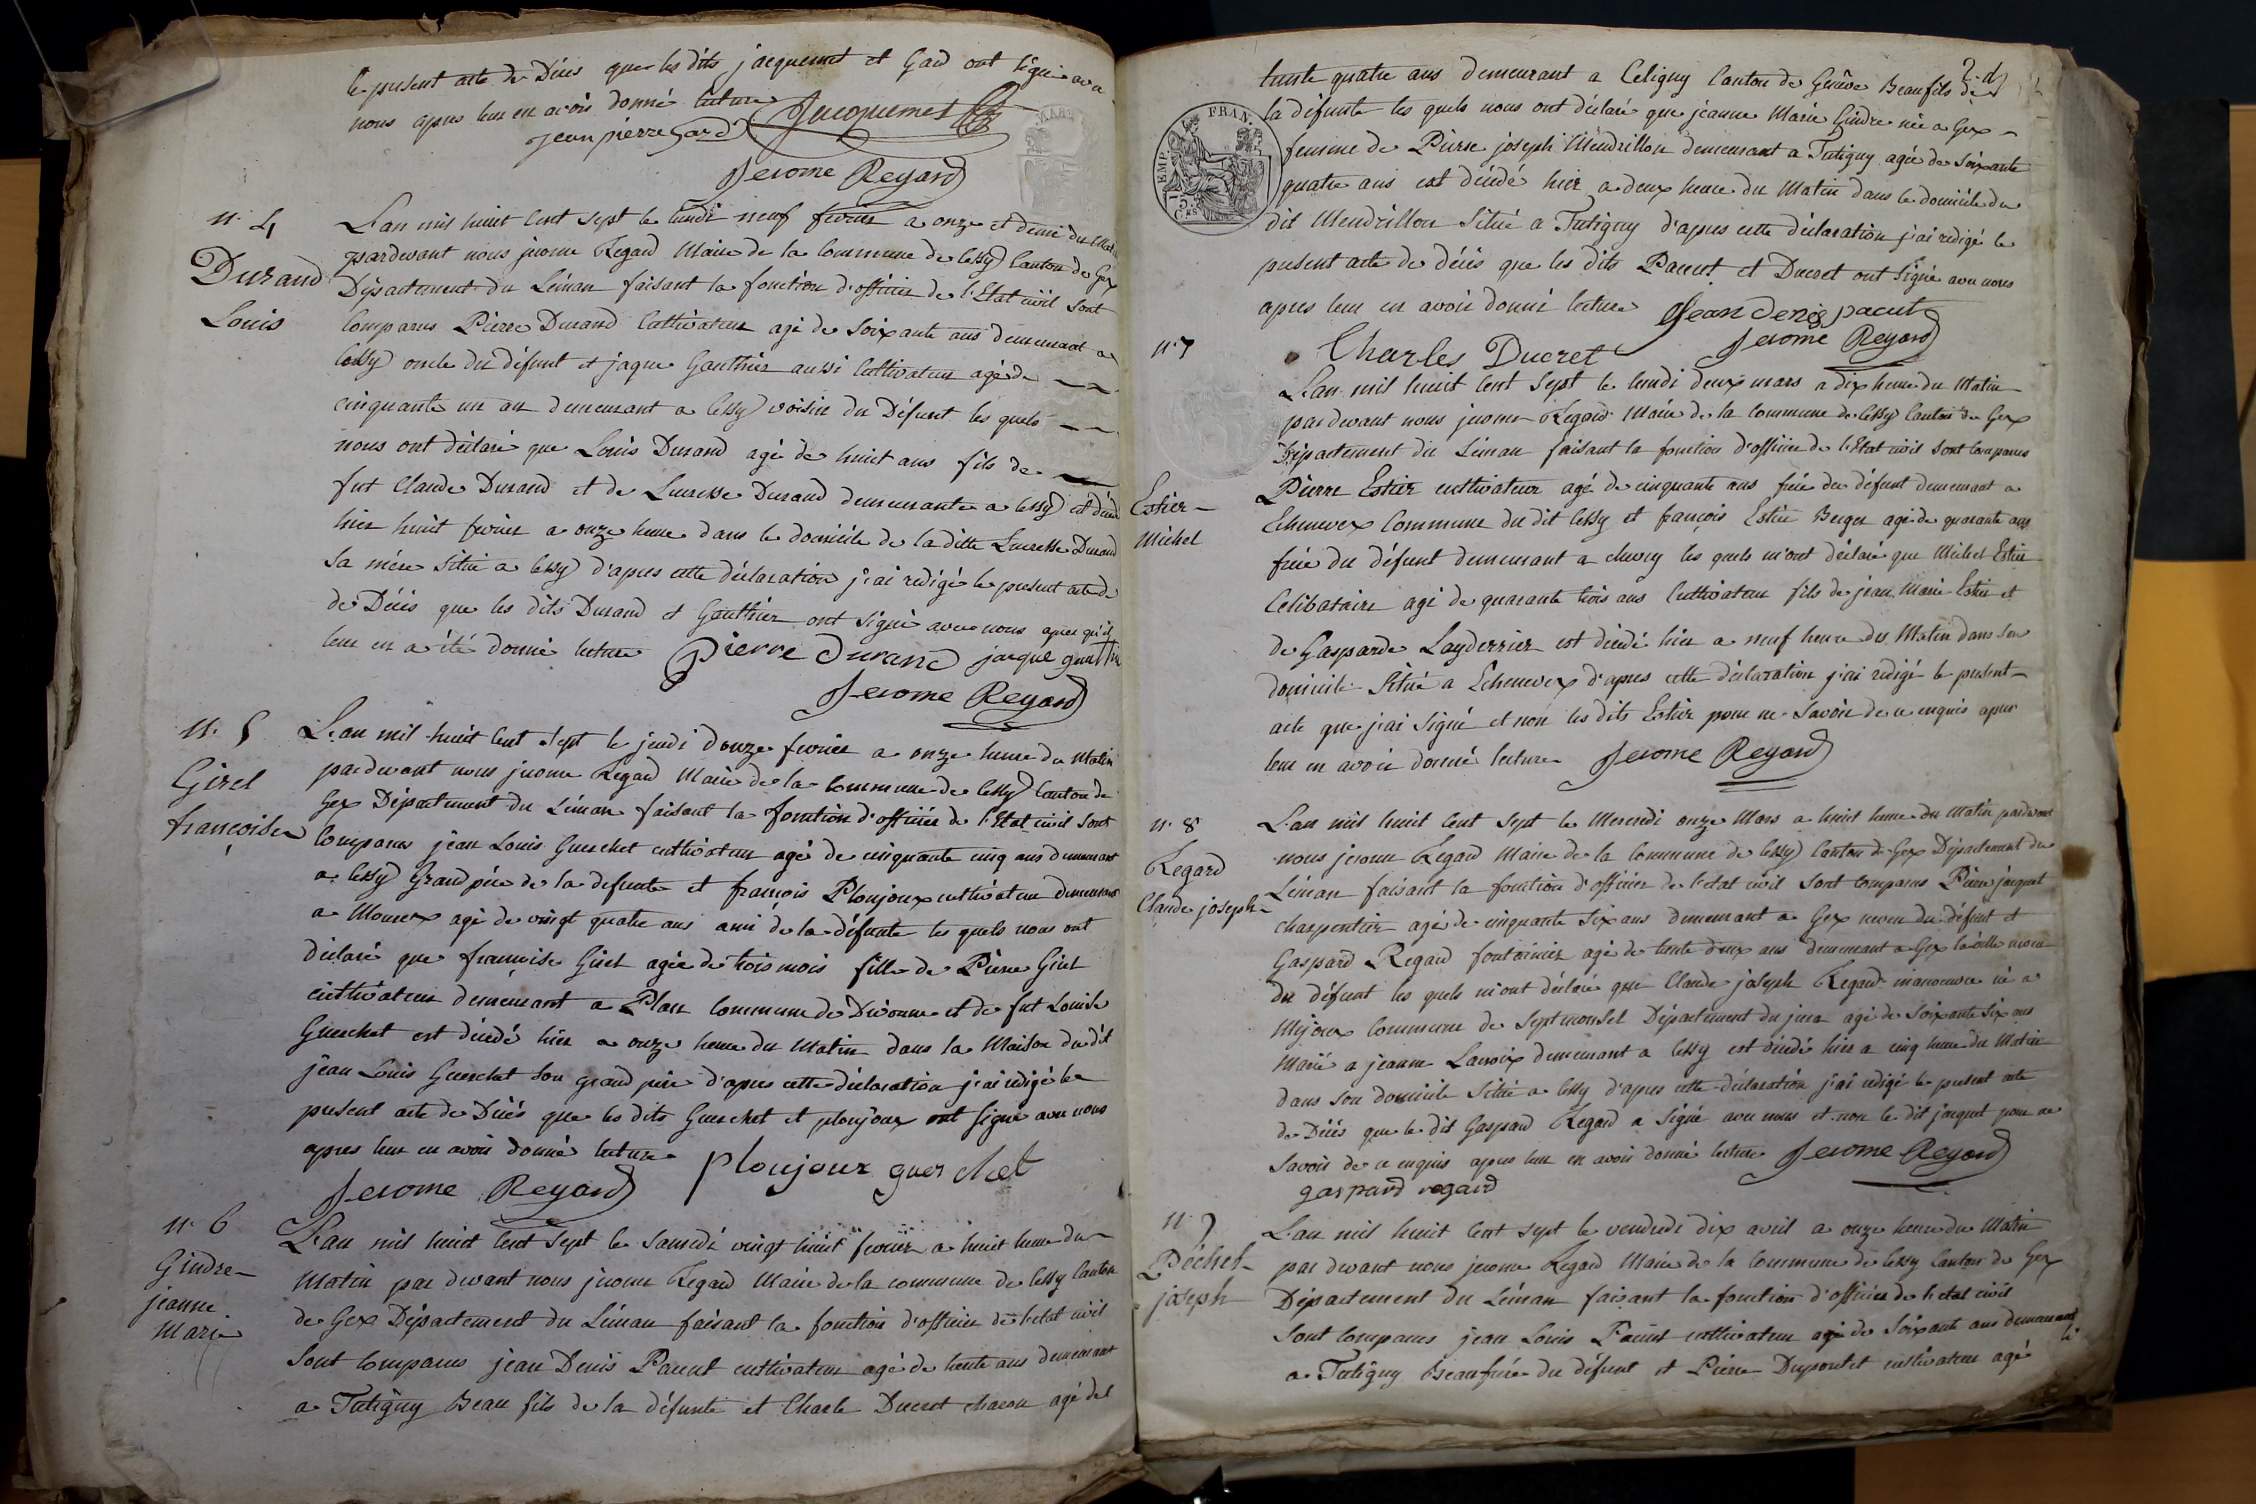 le present acte de Décés que les dits jacquemet et Gard ont signé avec
nous apres leur en avoir donné lecture Jacquemet
jean pierre Gard
Jerome Regard
n.º 4
Durand
Louis
L'an mil huit Cent sept le lundi neuf fevrier a onze et demi du Matin
pardevant nous jerome Regard Maire de la Commune de Cessy Canton de Gex
Département du Léman faisant la fonction d'officier de l'Etat civil sont
Comparus Pierre Durand Cultivateur agé de soixante ans demeurant a
Cessy oncle du défunt et jaque Gauthier aussi Cultivateur agé de
cinquante un an demeurant a Cessy voisin du Défunt les quels
nous ont déclaré que Louis Durand agé de huit ans fils de
fut Claude Durand et de Lucresse Durand demeurante a Cessy est décédé
hier huit fevrier a onze heure dans le domicile de la ditte Lucresse Durand
sa mére situé a Cessy d'apres cette déclaration j'ai redigé le present acte de
de Décés que les dits Durand et Gauthier ont signé avec nous apres qu'il
leur en a été donné lecture Pierre Durand jaque gauthier
Jerome Regard
n.º 5
Girel
françoise
L'an mil huit Cent sept le jeudi douze fevrier a onze heure du Matin
pardevant nous jerome Regard Maire de la Commune de Cessy Canton de
Gex Département du Léman faisant la fonction d'officier de l'Etat civil sont
Comparus jean Louis Guerchet cultivateur agé de cinquante cinq ans demeurant
a Cessy Grand pére de la defunte et francois Ploujoux cultivateur demeurant
a Mourex agé de vingt quatre ans ami de la défunte les quels nous ont
déclaré que francoise Girel agée de trois mois fille de Pierre Girel
cultivateur demeurant a Plan Commune de Divonne et de fut Louise
Guerchet est décédé hier a onze heure du Matin dans la Maison du dit
jean Louis Guerchet son grand pére d'apres cette déclaration j'ai redigé le
present acte de Décés que les dits Guerchet et ploujoux ont signé avec nous
apres leur en avoir donné lecture ploujoux guerchet
Jerome Regard
n.º 6
Gindre
jeanne
Marie
L'an mil huit Cent sept le samedi vingt huit fevrier a huit heure du
Matin par devant nous jerome Regard Maire de la commune de Cessy Canton
de Gex Département du Léman faisant la fonction d'officier de l'etat civil
sont Comparus jean Denis Pacut cultivateur agé de trente ans demeurant
a Tutigny Beau fils de la défunte et Charle Ducret charon agé de
trente quatre ans demeurant a Céligny Canton de Genève Beaufils de
la défunte les quels nous ont déclaré que jeanne Marie Gindre née a Gex
femme de Pierre joseph Mendrillon demeurant a Tutigny agée de soixante
quatre ans est décédé hier a deux heure du Matin dans le domicile du
dit Mendrillon situé a Tutigny d'apres cette déclaration j'ai redigé le
present acte de décés que les dits Pacut et Ducret ont signé avec nous
apres leur en avoir donné lecture Jean denis pacut
Charles Ducret Jerome Regard
FRAN.
TEMP.
75.
C.ES
n.º 7
Estier
Michel
L'an mil huit Cent sept le lundi deux mars a dix heure du Matin
par devant nous jerome Regard Maire de la Commune de Cessy Canton de Gex
Département du Léman faisant la fonction d'officier de l'Etat civil sont comparus
Pierre Estier cultivateur agé de cinquante ans frére du défunt demeurant a
Echenevex Commune du dit Cessy et françois Estier Berger agé de quarante ans
frére du défunt demeurant a chevry les quels m'ont déclaré que Michel Estier
Celibataire agé de quarante trois ans Cultivateur fils de jean Marie Estier et
de Gasparde Layderrier est décédé hier a neuf heure du Matin dans son
domicile situé a Echenevex d'apres cette déclaration j'ai redigé le present
acte que j'ai signé et non les dits Estier pour ne savoir de ce enquis apres
leur en avoir donné lecture Jerome Regard
n.º 8
Regard
Claude joseph
L'an mil huit Cent sept le Mercredi onze Mars a huit heure du Matin pardevant
nous jerome Regard Maire de la Commune de Cessy Canton de Gex Département du
Léman faisant la fonction d'officier de l'etat civil sont comparus Pierre jaquet
charpentier agé de cinquante six ans demeurant a Gex neveu du défunt et
Gaspard Regard fontainier agé de trente deux ans demeurant a Gex la ville neveu
du défunt les quels m'ont déclaré que Claude joseph Regard manoeuvre né a
Mijoux Commune de Septmonsel Département du jura agé de soixante six ans
Marié a jeanne Lacroix demeurant a Cessy est décédé hier a cinq heure du Matin
dans son domicile situé a Cessy d'apres cette déclaration j'ai redigé le present acte
de Décés que le dit Gaspard Regard a signé avec nous et non le dit jaquet pour ne
savoir de ce enquis apres leur en avoir donné lecture Jerome Regard
gaspard regard
n.º 9
Péchet
joseph
L'an mil huit Cent sept le vendredi dix avril a onze heure du Matin
par devant nous jerome Regard Maire de la Commune de Cessy Canton de Gex
Département du Léman faisant la fonction d'officier de l'etat civil
sont Comparus jean Louis Pacut cultivateur agé de soixante ans demeurant
a Tutigny Beaufrére du défunt et Pierre Dupontet cultivateur agé